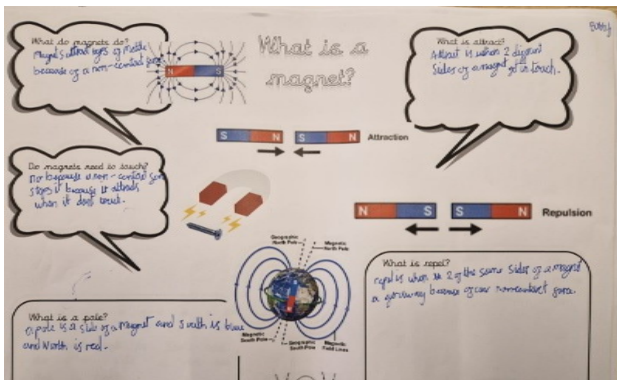 What do magnets do?
Magnets attract types of
because of a non-contact
What is a
magnet?
What is attract?
Attract is when 2 different
Sides of a magnet get in touch.
N S
S N S N Attraction
Do magnets need to touch?
No because a non-contact
stops it because it attracts
when it does
N S S N Repulsion
Geographic
North Pole
Magnetic
North Pole
Magnetic
South Pole
Geographic
South Pole
Magnetic
Field Lines
What is repel?
repel is when 2 of the same sides of a magnet
a because of non-contact force.
What is a pole?
a pole is a side of a magnet and south is blue
and North is red.